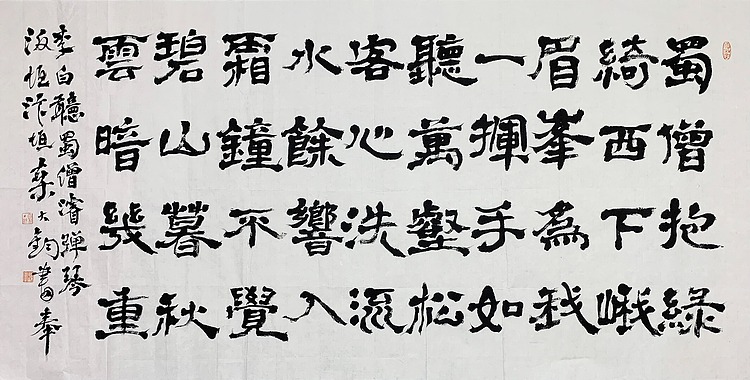 蜀僧抱綠
綺西下峨
眉峯為我
一揮手如
聽萬壑松
客心洗流
水餘響入
霜鐘不覺
碧山暮秋
雲暗幾重
李白聽蜀僧濬彈琴
桑大鈞書奉